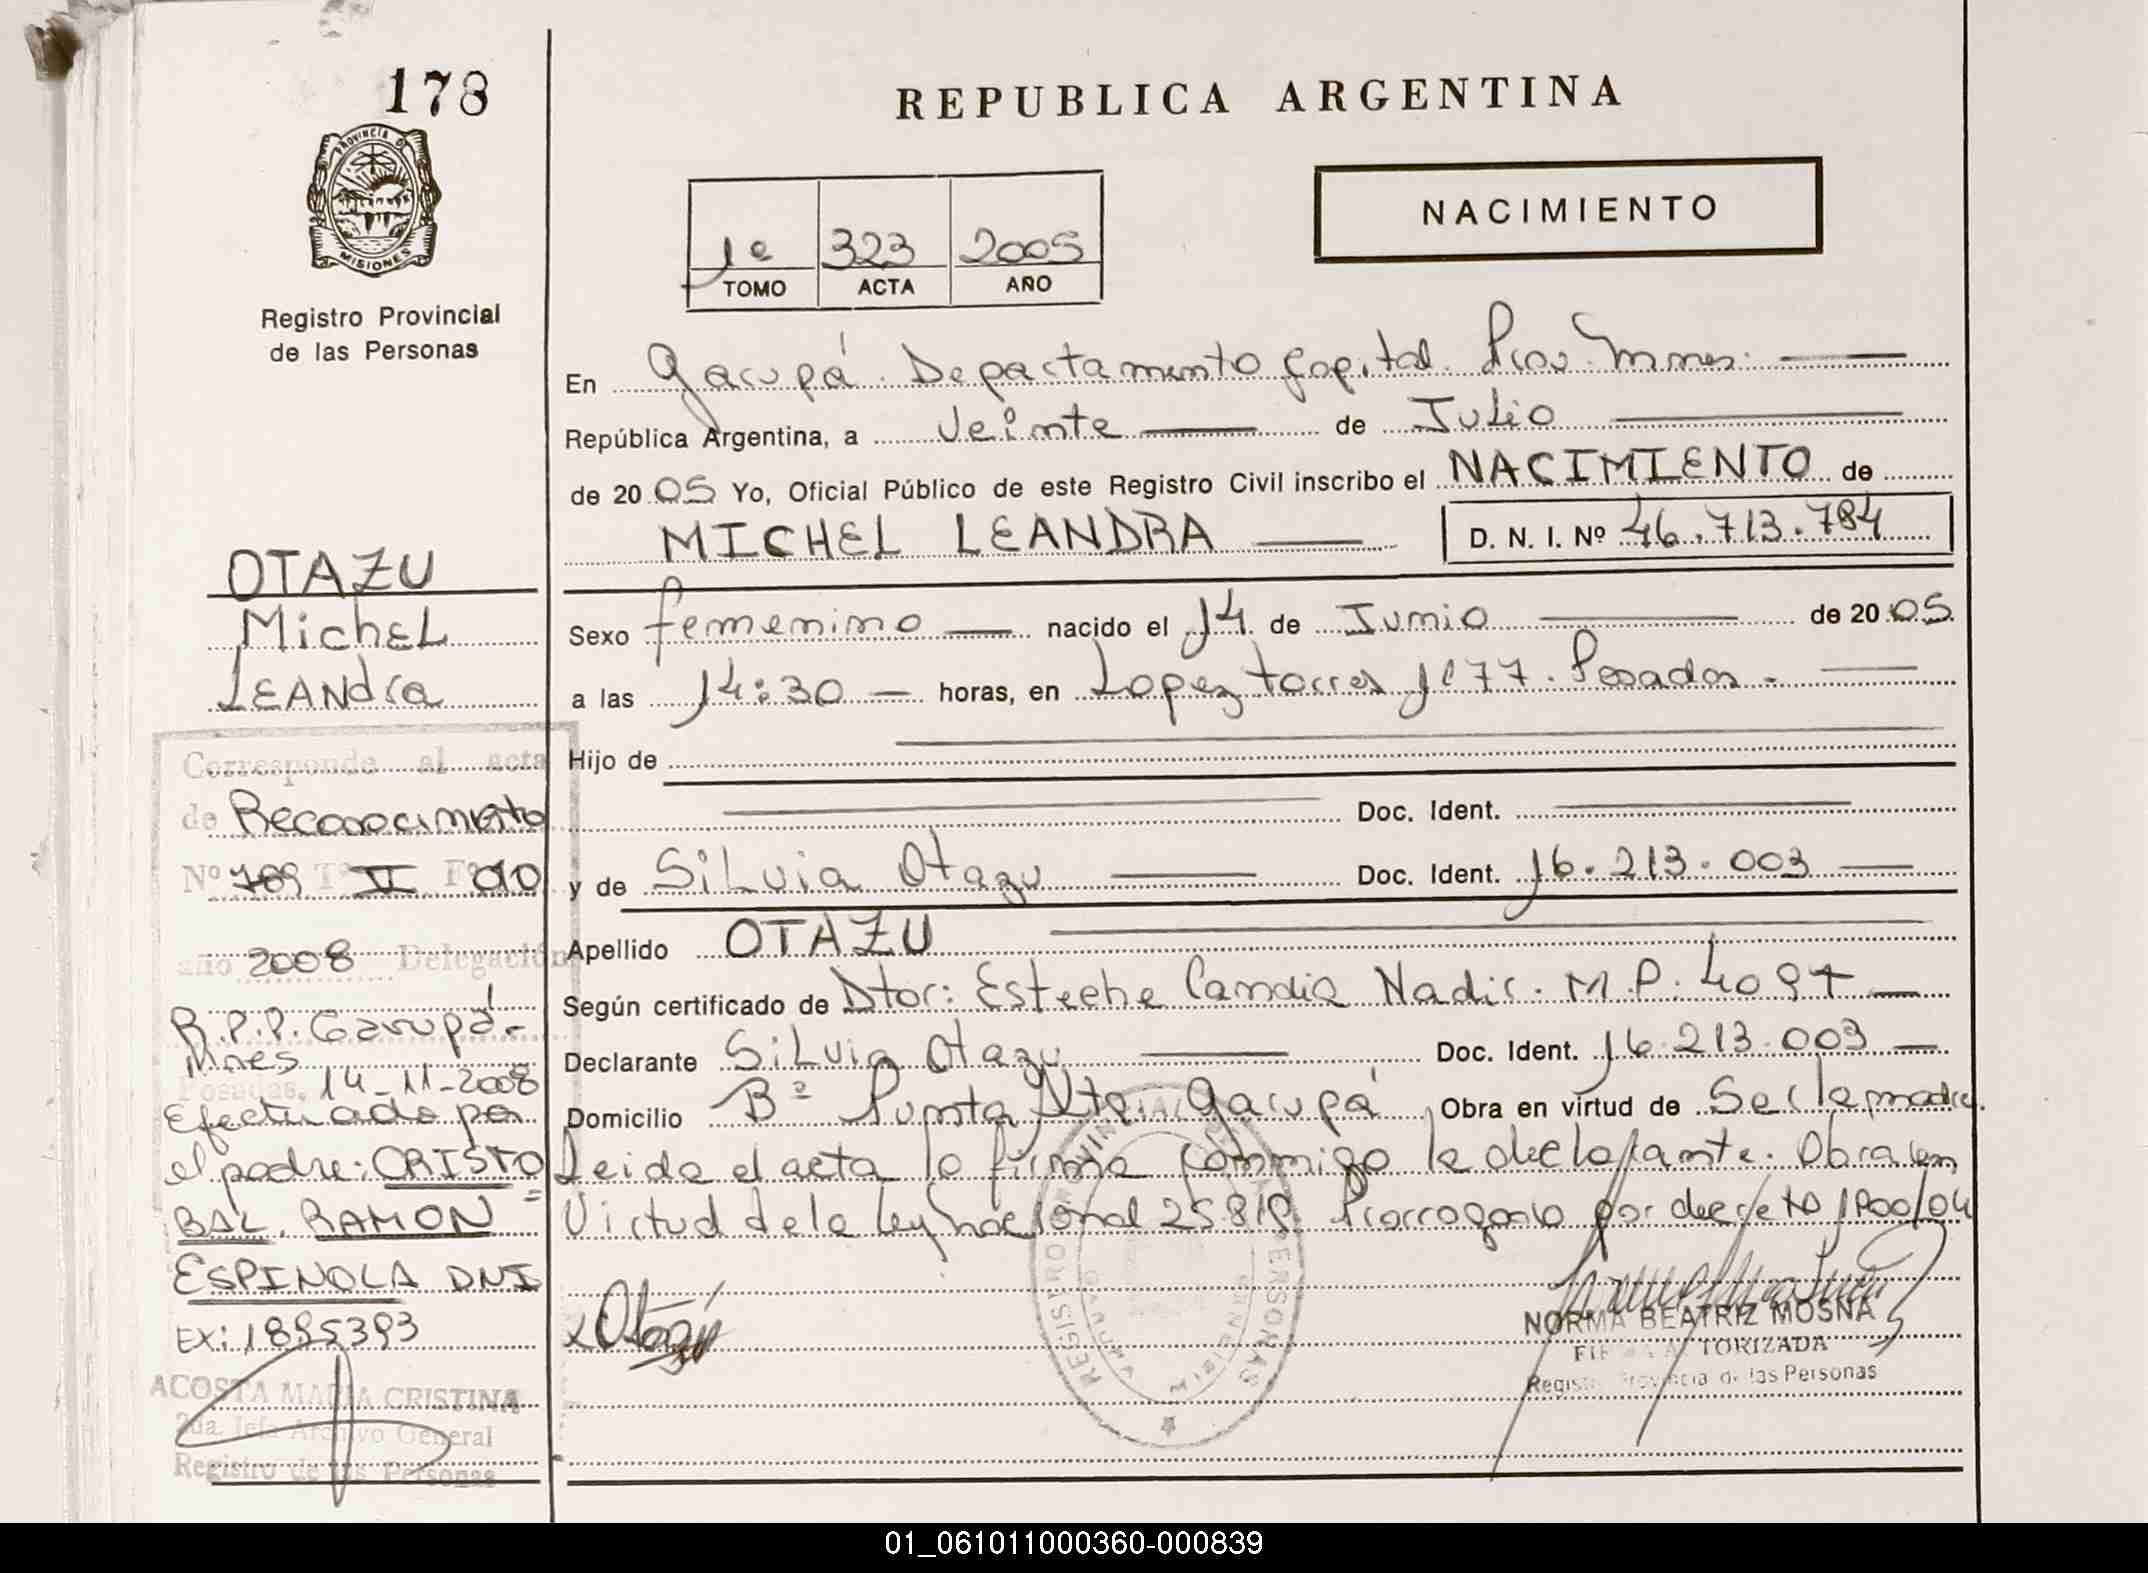 178
REPUBLICA ARGENTINA
PROVINCIA DE
MISIONES
Registro Provincial
de las Personas
NACIMIENTO
1º 323 2005
TOMO ACTA AÑO
En Garupá. Departamento Capital. Prov. Mnes.
República Argentina, a Veinte de Julio
de 2005 Yo, Oficial Público de este Registro Civil inscribo el NACIMIENTO de
MICHEL LEANDRA D. N. I. Nº 46.713.784
Sexo femenino nacido el 14 de Junio de 2005
a las 14:30 horas, en Lopez torres 1177. Posadas.
Hijo de
Doc. Ident.
y de Silvia Otazu Doc. Ident. 16.213.003
Apellido OTAZU
Según certificado de Dtor: Esteche Candia Nadir. M.P. 4097
Declarante Silvia Otazu Doc. Ident. 16.213.003
Domicilio Bº Punta Alta Garupá Obra en virtud de Ser la madre.
Leida el acta la firma conmigo la declarante. Obra en
Virtud de la ley nacional 25.819 Prorrogado por decreto 1800/04
Otazu
NORMA BEATRIZ MOSNA
FIRMA AUTORIZADA
Registro Provincial de las Personas
OTAZU
Michel
LEANdra
Corresponde al acta
de Reconocimiento
Nº 789 Tº II Fº 010
año 2008 Delegación
R.P.P. Garupá-
Mnes
Posadas, 14-11-2008
Efectuado por
el padre: CRISTO
BAL. RAMON
ESPINOLA DNI
EX: 1895393
ACOSTA MARIA CRISTINA
2da. Jefa Archivo General
Registro de las Personas
01_061011000360-000839